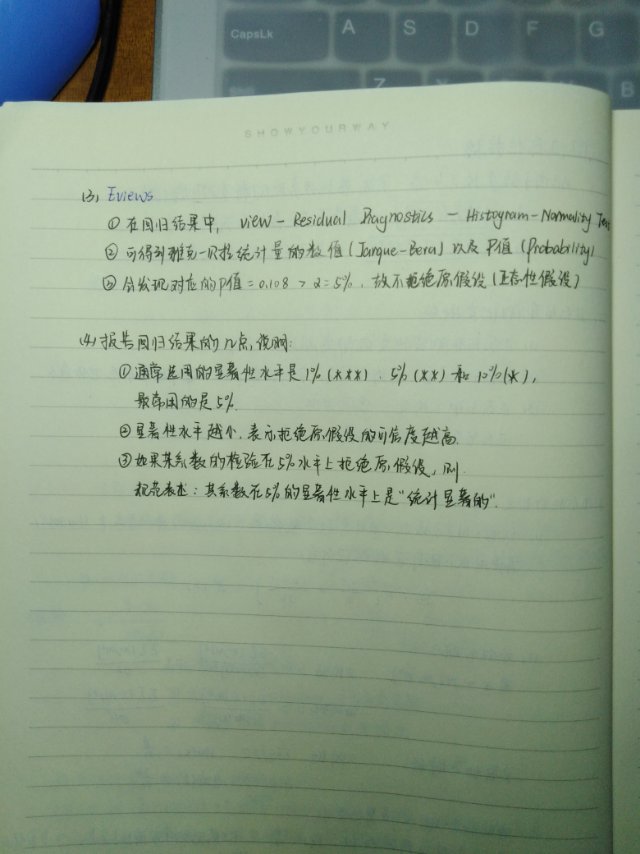 CapsLk A S D F G
Z B
SHOWYOURWAY
(3) Eviews
① 在回归结果中, view - Residual Diagnostics - Histogram-Normality Tes
② 可得到雅克-贝拉统计量的数值(Jarque-Bera)以及P值(Probability)
③ 会发现对应的P值=0.108 > α=5%, 故不拒绝原假设(正态性假设)
(4) 报告回归结果的几点说明:
① 通常运用的显著性水平是1%(***)、5%(**)和10%(*),
最常用的是5%.
② 显著性水平越小, 表示拒绝原假设的可信度越高.
③ 如果某系数的检验在5%水平上拒绝原假设, 则
规范表述: 其系数在5%的显著性水平上是"统计显著的".